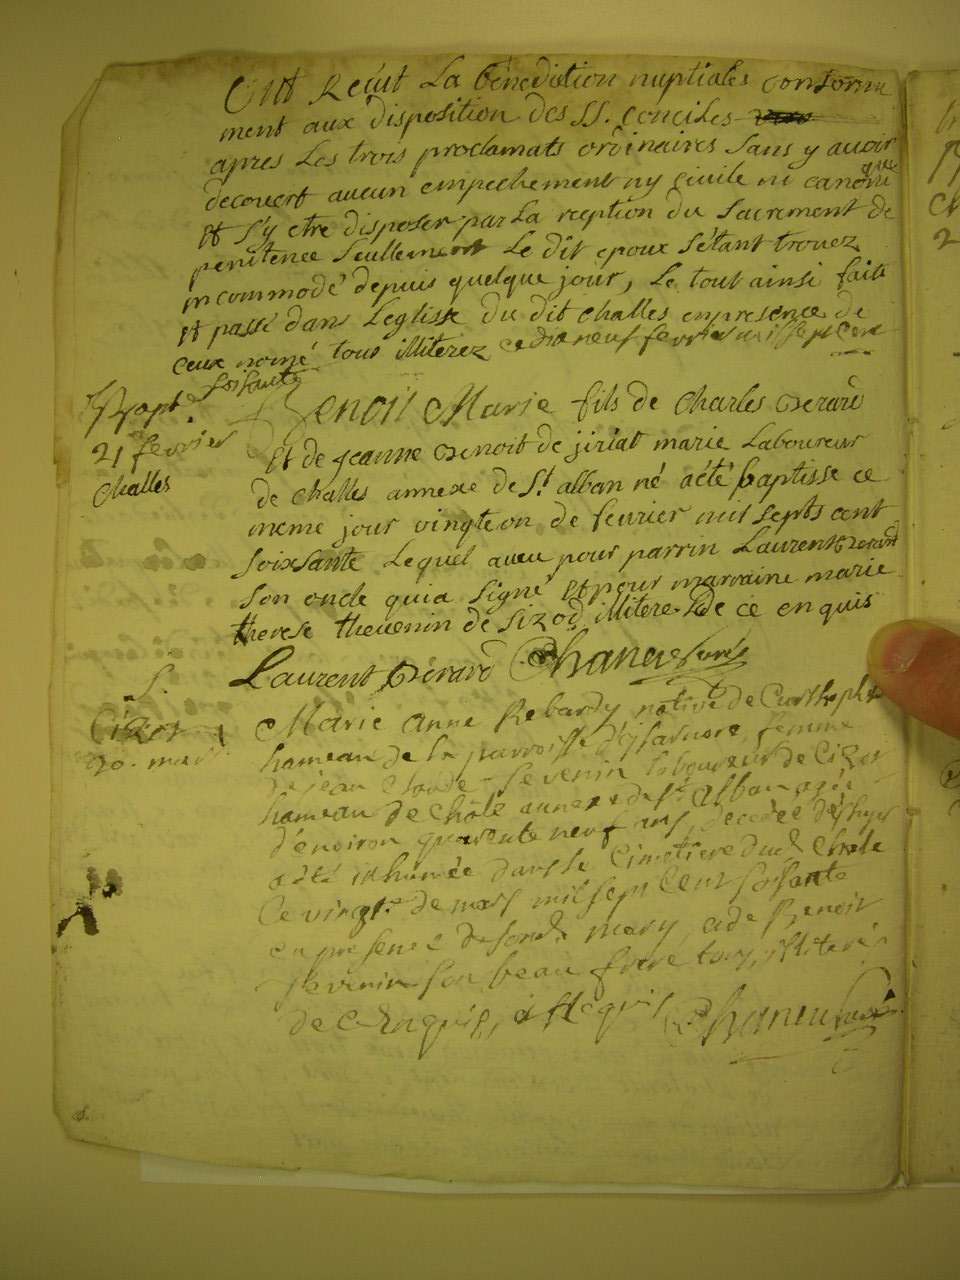 Ont Reçut La bénédiction nuptiales conformé
ment aux disposition des SS. conciles
apres Les trois proclamats ordinaires Sans y avoir
decouvert aucun empechement ny civile ni canoni
que
Et S'y etre disposer par La reception du Sacrement de
penitence Seullement Le dit epoux S'étant trouvez
incommodé depuis quelque jour, Le tout ainsi fait
Et passé dans Leglisse du dit Challes en presence de
ceux nomé tous illiterez ce dix neuf fevrier mil sept cent
soisante
Bapt.
21 fevrier
Challes
Benoit Marie fils de Charles Gerard
Et de jeanne Benoit de jiriat marie Laboureur
de Challes annexe de St. alban né a été baptisse ce
meme jour vingt e un de fevrier mil septs cent
Soixsante Lequel a eu pour parrin Laurent Gerard
Son oncle qui a Signé Et pour marraine marie
therese thevenin de Sizod illitere. De ce enquis
Laurent Gérard Chaneu Curé
S.
Cizod
20. mars
Marie Anne Rebardy native de
hameau de la parroisse d'isarnore, femme
de jean Claude Tevenin laboureur de Cizod
hameau de Châle annexe de St. Alban agée
d'environ quarente neuf ans, decedée d'
a été inhumée dans le Cimetiere dud. Châle
Ce vingt. de mars mil sept Cent soisante
en presence de sond. mary, et de Benoit
Tevenin son beau frere tous illiterés
de Ce enquis, et Requis Chaneu Curé